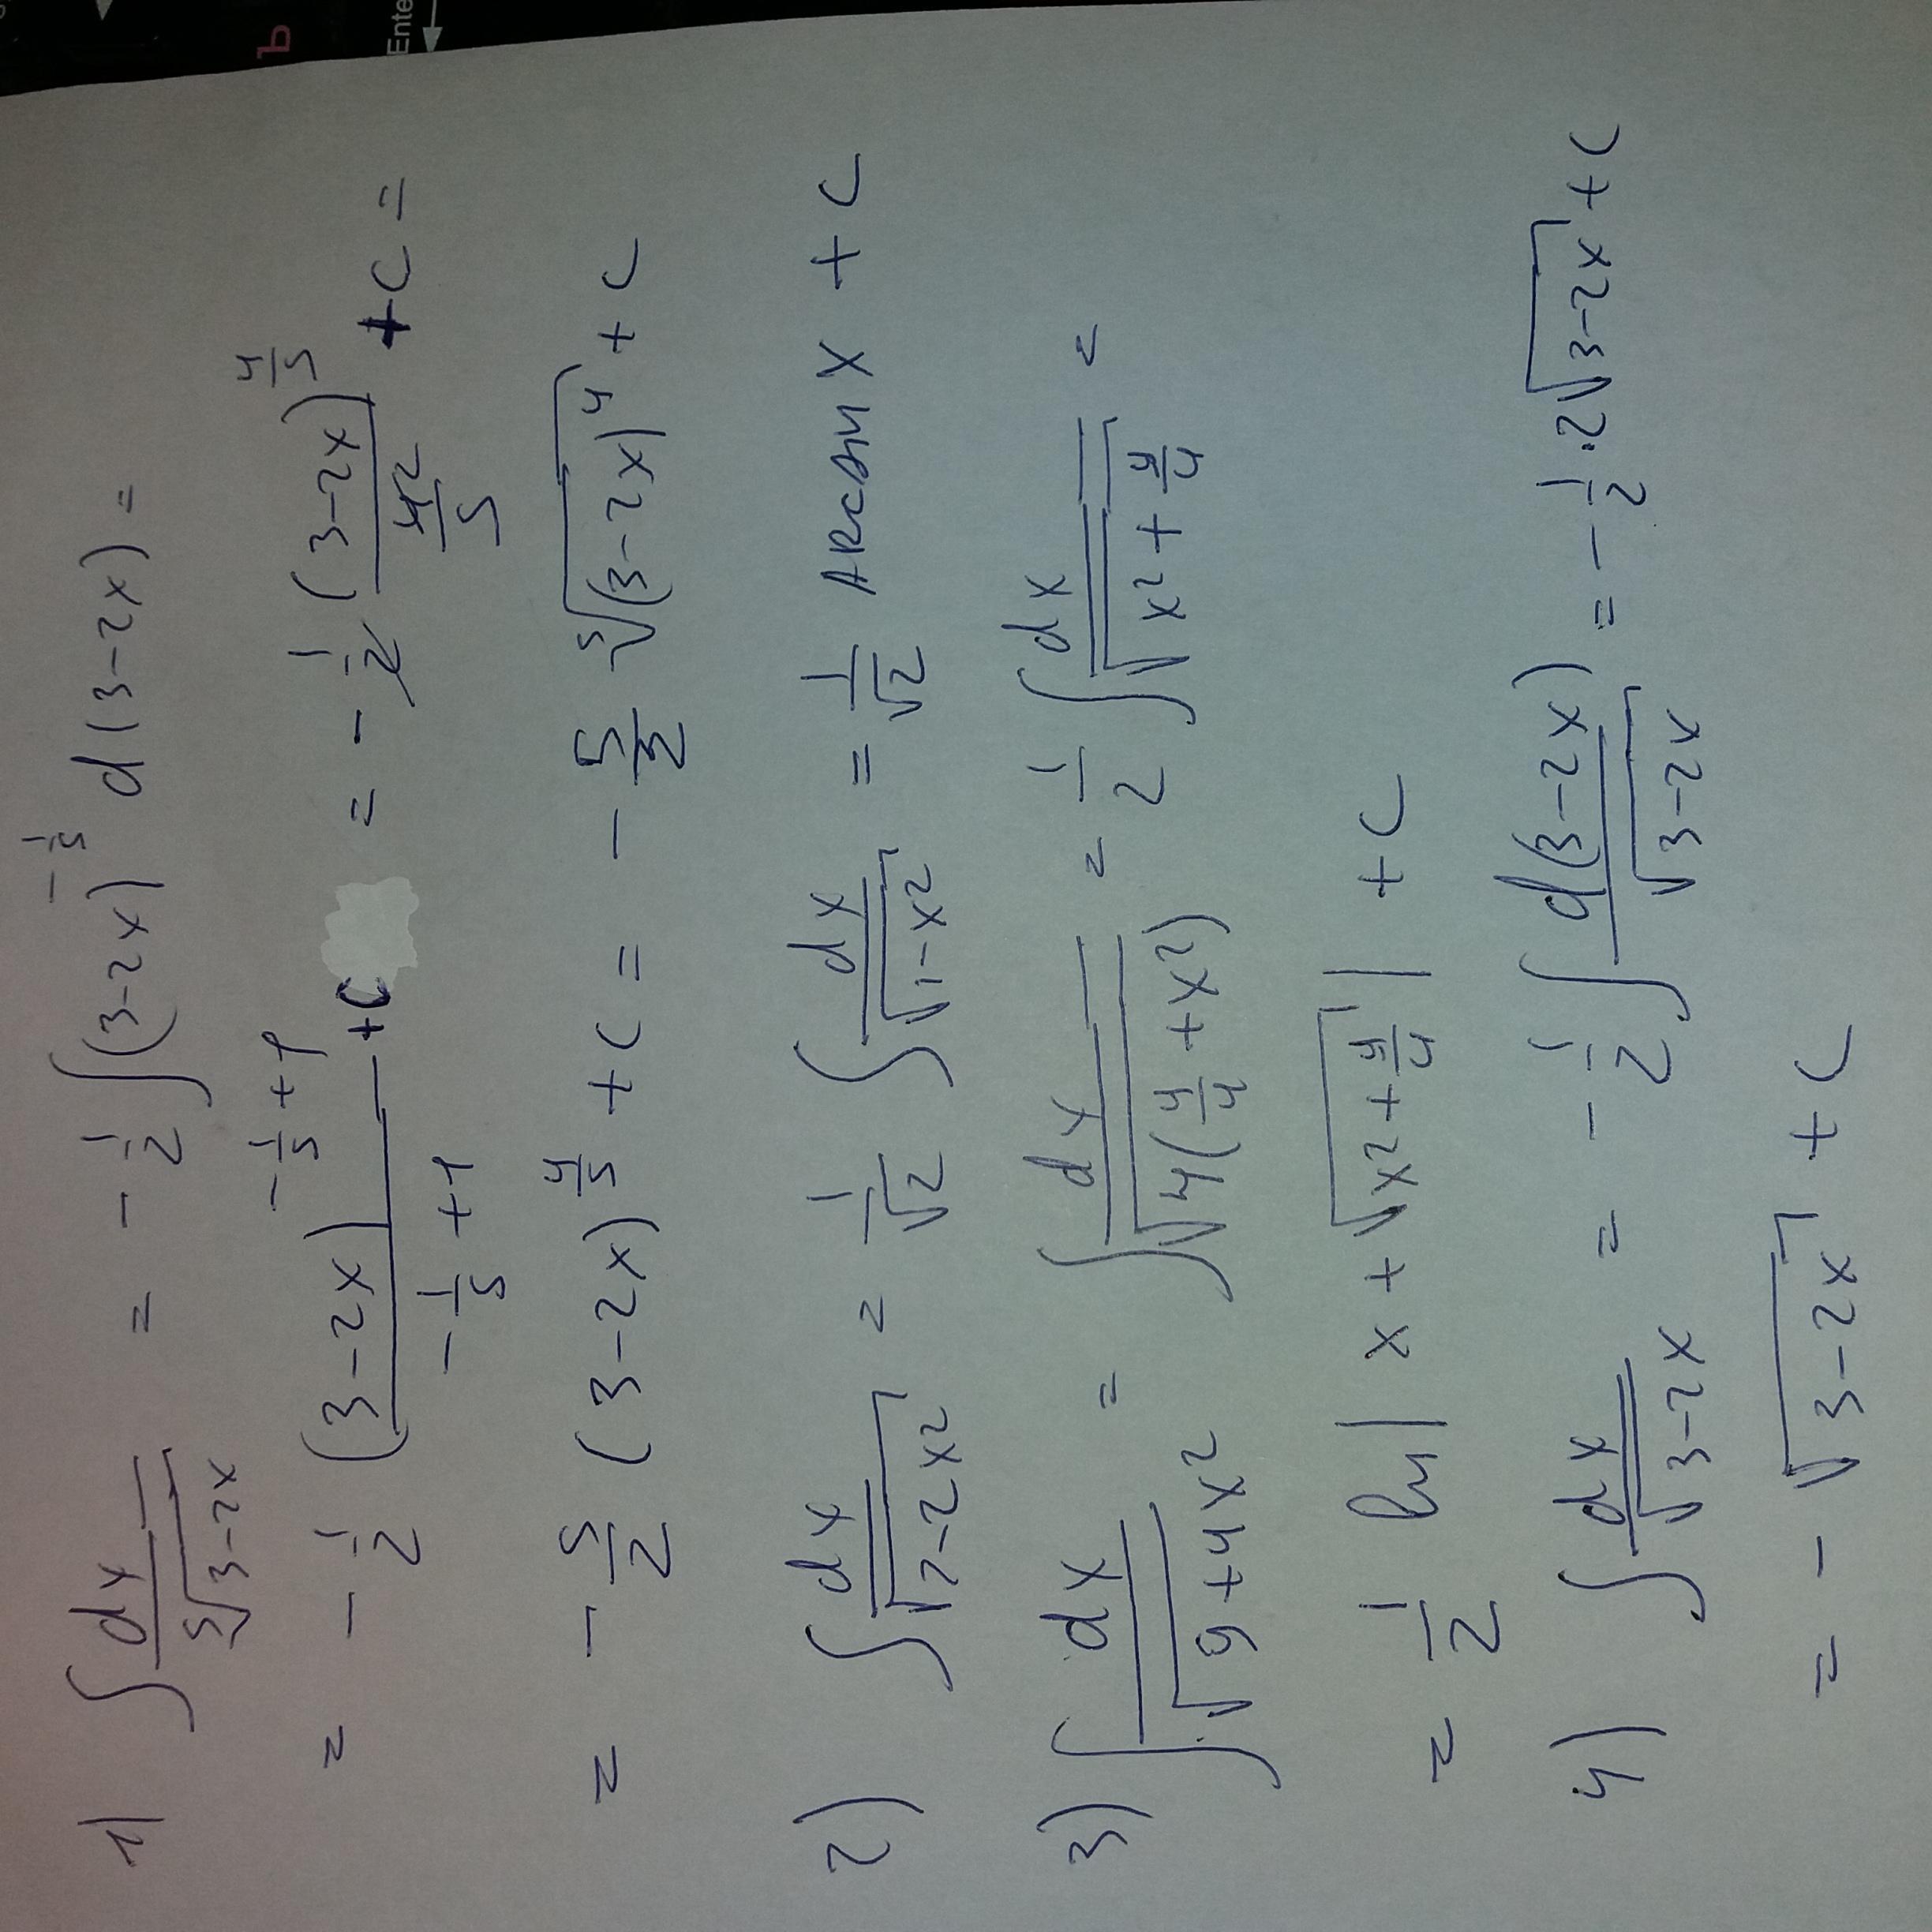 Ъ
Ente
1) ∫ dx/⁵√(3-2x) = -1/2 ∫(3-2x)^(-1/5) d(3-2x) =
= -1/2 (3-2x)^(-1/5+1)/(-1/5+1) +C = -1/2 (3-2x)^(4/5)/(42/5) +C =
= -5/2 (3-2x)^(4/5) +C = -5/2 ⁵√((3-2x)^4) +C
2) ∫ dx/√(2-2x²) = 1/√2 ∫ dx/√(1-x²) = 1/√2 ARcsin x +C
3) ∫ dx/√(9+4x²) = ∫ dx/√(4(9/4+x²)) = 1/2 ∫ dx/√(x²+9/4) =
= 1/2 ln|x+√(x²+9/4)| +C
4) ∫ dx/√(3-2x) = -1/2 ∫ d(3-2x)/√(3-2x) = -1/2·2√(3-2x) +C
= -√(3-2x) +C